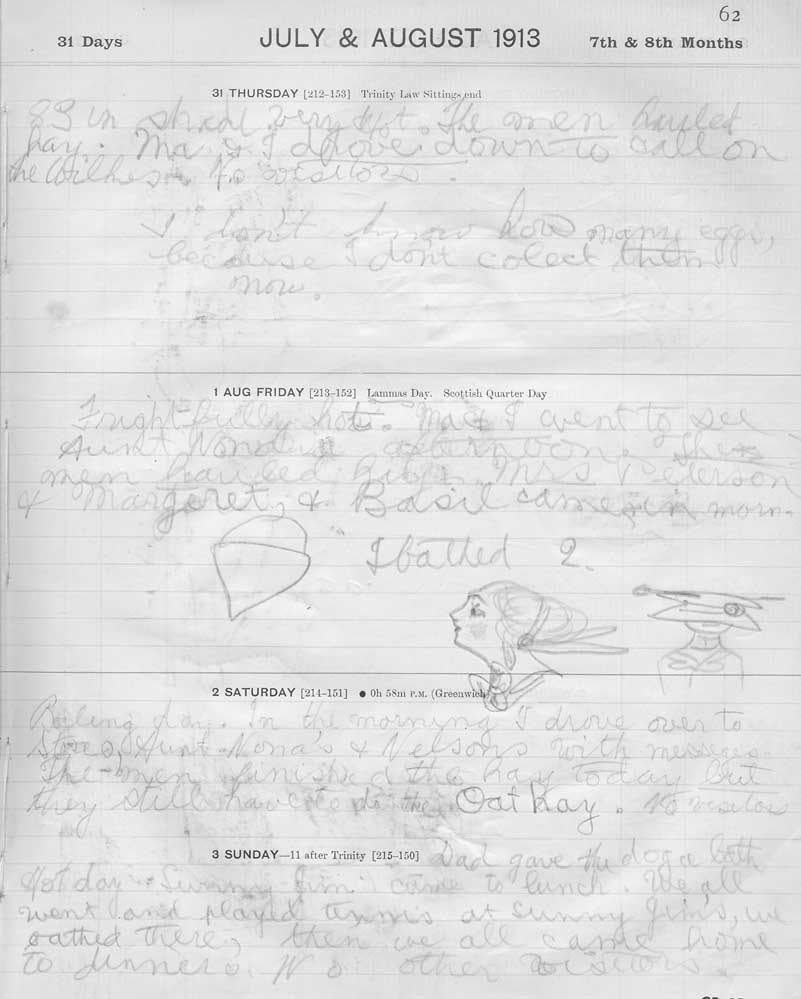 62
31 Days JULY & AUGUST 1913 7th & 8th Months
31 THURSDAY [212–153] Trinity Law Sittings end
83 in shade very hot. The men hauled
hay. Ma & I drove down to call on
the Wilkes. No visitors.
I don't know how many eggs,
because I dont colect them
now.
1 AUG FRIDAY [213–152] Lammas Day. Scottish Quarter Day
Frightfully hot. Ma & I went to see
Aunt Nona in afternoon. The
men hauled hay. Mrs Peterson
& Margaret, & Basil came in morn.
I bathed 2.
2 SATURDAY [214–151] ● 0h 58m P.M. (Greenwich)
Boiling day. In the morning I drove over to
Aunt Nona's & Nelsons with
The men finished the hay today but
they still have to do the Oat hay. No visitors
3 SUNDAY—11 after Trinity [215–150] Dad gave the dog a bath
Hot day. Sunny Jim came to lunch. We all
went and played tennis at Sunny Jim's, we
bathed there, then we all came home
to dinner. No other visitors.